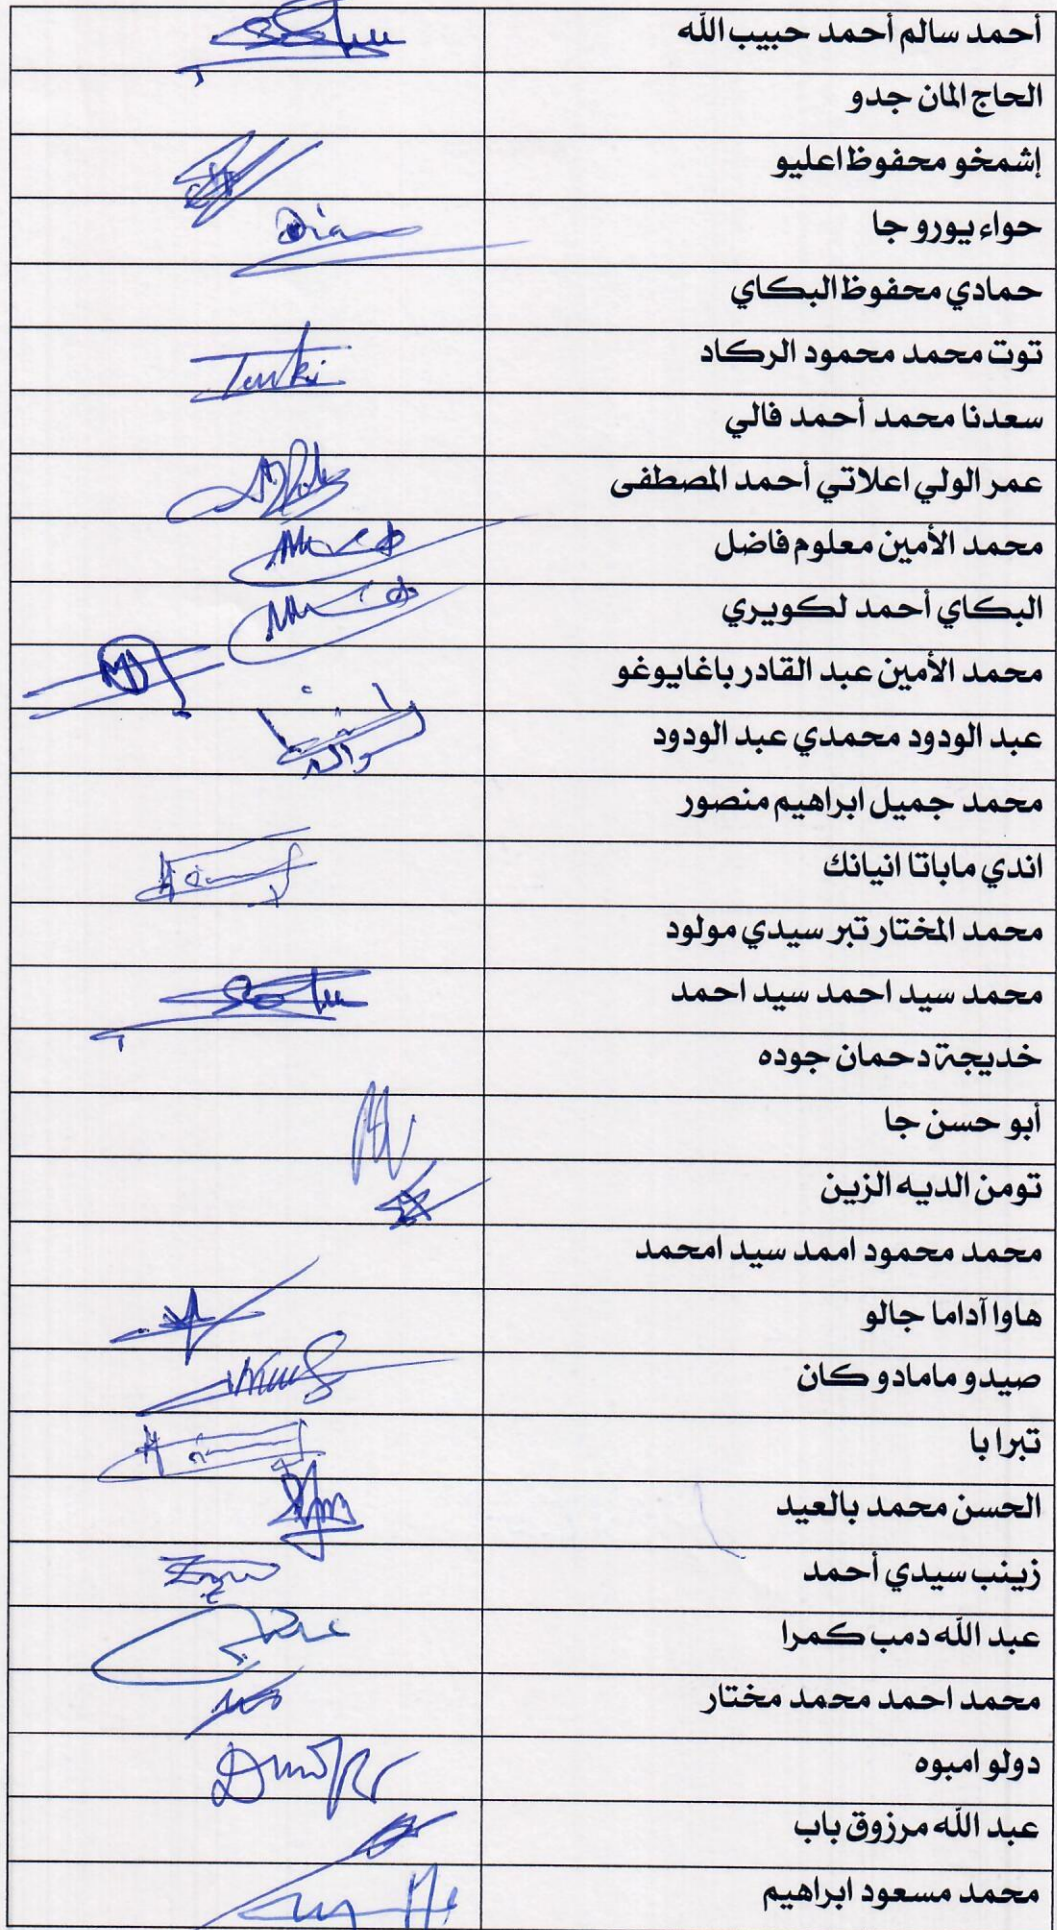 أحمد سالم أحمد حبيب الله
الحاج المان جدو
إشمخو محفوظ اعليو
حواء يورو جا
Dia
حمادي محفوظ البكاي
توت محمد محمود الركاد
سعدنا محمد أحمد فالي
عمر الولي اعلاتي أحمد المصطفى
محمد الأمين معلوم فاضل
البكاي أحمد لكويري
محمد الأمين عبد القادر باغايوغو
عبد الودود محمدي عبد الودود
محمد جميل ابراهيم منصور
اندي ماباتا انيانك
محمد المختار تبر سيدي مولود
محمد سيد احمد سيد احمد
خديجة دحمان جوده
أبو حسن جا
تومن الديه الزين
محمد محمود اممد سيد امحمد
هاوا آداما جالو
صيدو مامادو كان
تبرا با
الحسن محمد بالعيد
زينب سيدي أحمد
عبد الله دمب كمرا
محمد احمد محمد مختار
دولو امبوه
عبد الله مرزوق باب
محمد مسعود ابراهيم